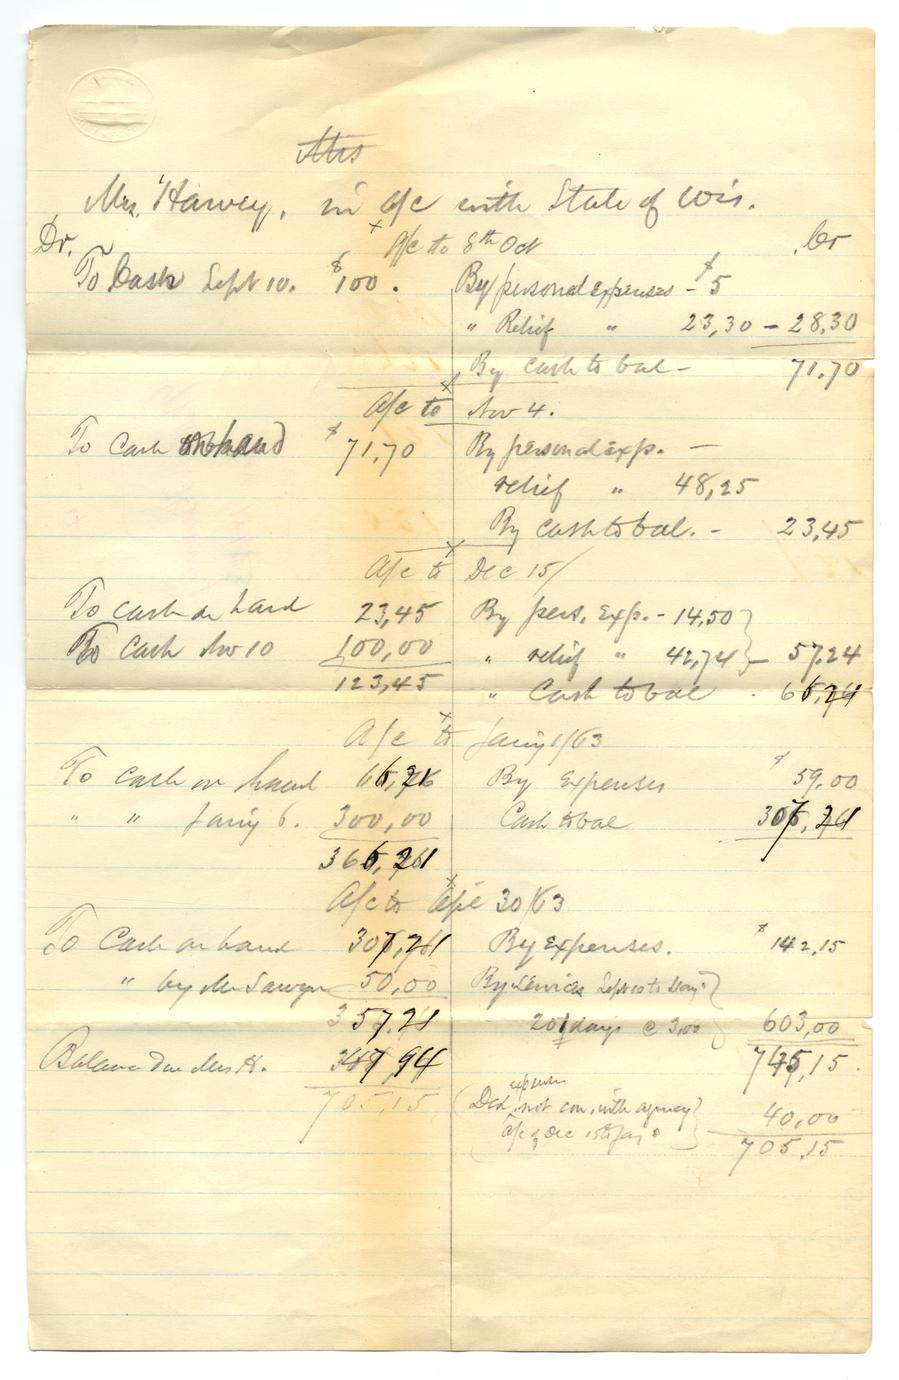 Mrs
Mrs. Harvey, in a/c with State of Wis.
Dr. A/c to 8th Oct Cr
To Cash Sept 10. $100. By personal expenses - $5
" Relief " 23,30 - 28,30
By cash to bal - 71.70
A/c to Nov 4.
To Cash on hand $71,70 By personal exp. —
relief " 48,25
By cash to bal. - 23,45
A/c to Dec 15/
To cash on hand 23,45 By pers. Exp. - 14,50
To Cash Nov 10 100,00 " relief " 42,74 - 57,24
123,45 " Cash to bal . 66,21
A/c to Jany 1/63
To Cash on hand 66,21 By Expenses $59.00
" " Jany 6. 300,00 Cash to bal 307,21
366,21
A/c to Apl 30/63
To Cash on hand 307,21 By Expenses. $142,15
" by Mr Sawyer 50,00 By Services Sept 10 to
357,21 201 days @ 3,00 603,00
Balance Due Mrs H. 347 94 745,15.
705,15 expenses
Ded. not con. with agency 40,00
a/c of Dec 15 to Jany 705.15